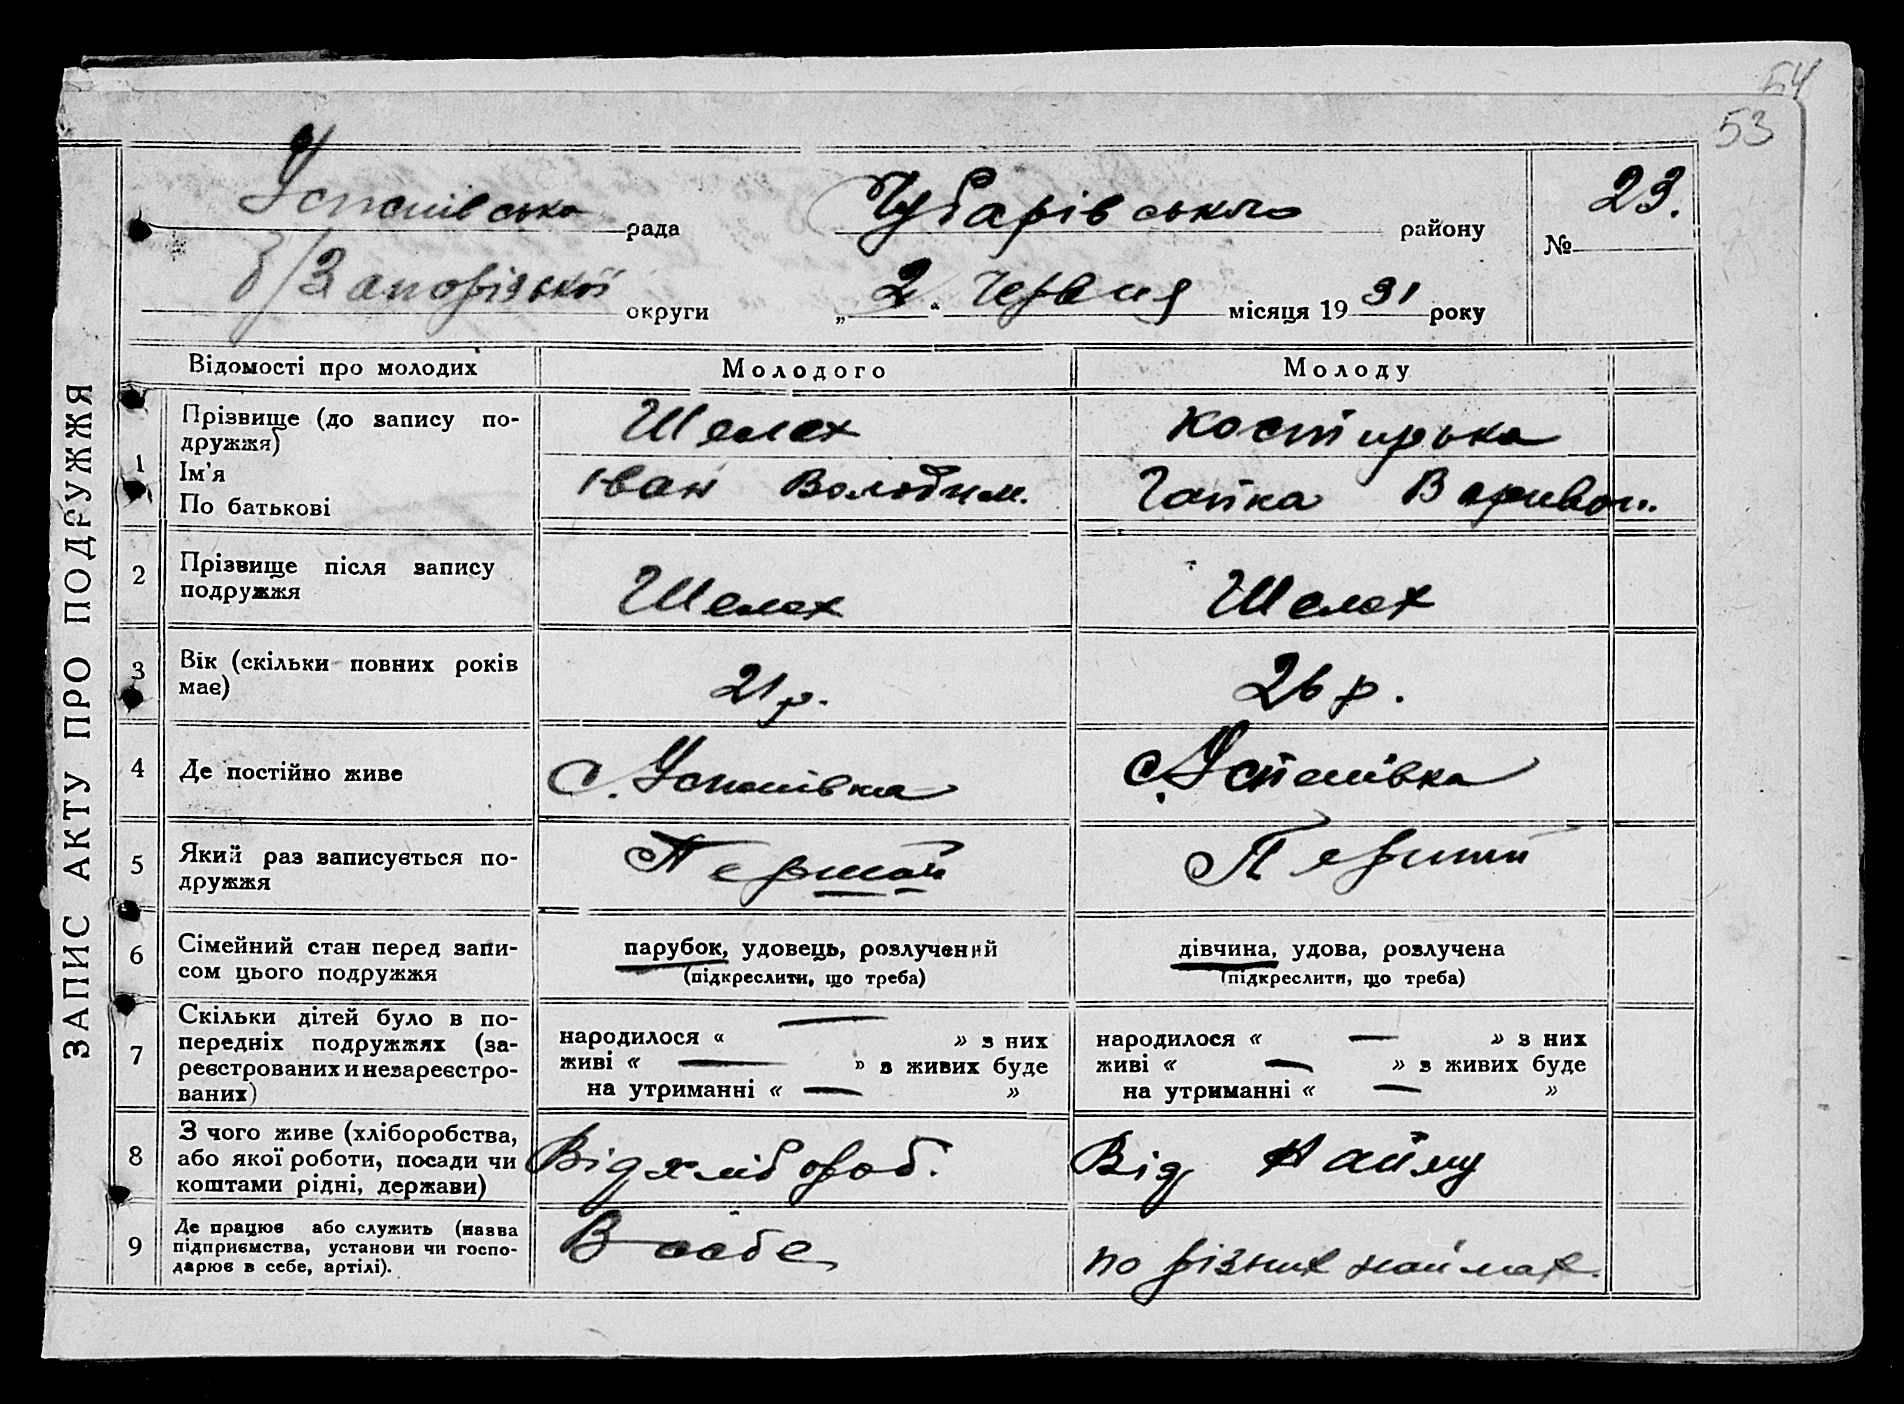 54
53
Успенівська рада Чубарівського району № 23.
б/Запорізької округи „2“ Червня місяця 1931 року
ЗАПИС АКТУ ПРО ПОДРУЖЖЯ
Відомості про молодих Молодого Молоду
1 Прізвище (до запису по-
дружжя) Шелех
Ім'я
По батькові Іван Володим. Гапка
2 Прізвище після запису
подружжя Шелех Шелех
3 Вік (скільки повних років
має) 21 р. 26 р.
4 Де постійно живе с. Успенівка с. Успенівка
5 Який раз записується по-
дружжя Перший Перший
6 Сімейний стан перед запи-
сом цього подружжя
парубок, удовець, розлучений
(підкреслити, що треба)
дівчина, удова, розлучена
(підкреслити, що треба)
7 Скільки дітей було в по-
передніх подружжях (за-
реєстрованих и незареєстро-
ваних)
народилося « — » з них
живі « — » з живих буде
на утриманні « — »
народилося « — » з них
живі « — » з живих буде
на утриманні « — »
8 З чого живе (хліборобства,
або якої роботи, посади чи
коштами рідні, держави)
Від хлібороб. Від Найму
9 Де працює або служить (назва
підприємства, установи чи госпо-
дарює в себе, артілі).
В себе по різних наймах.